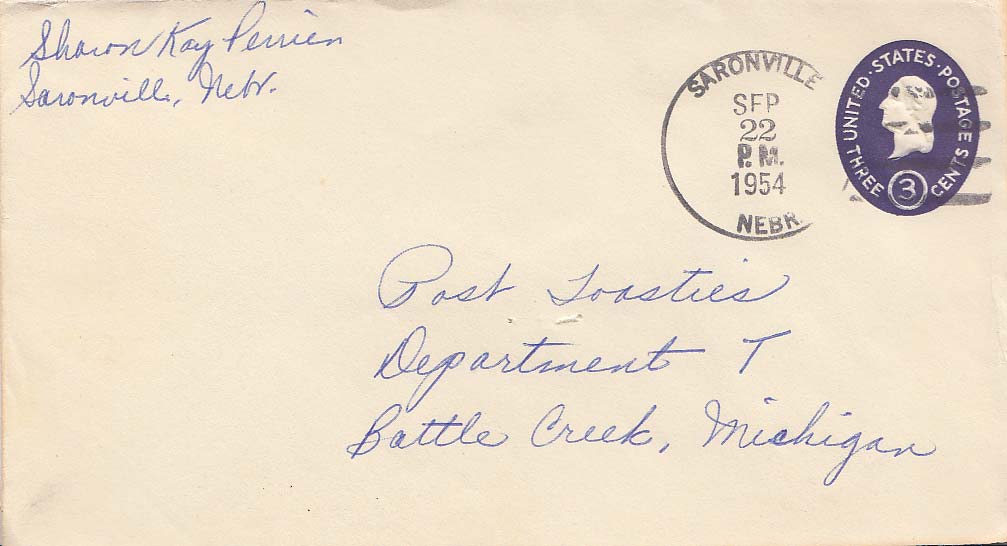 Sharon Kay Perrien
Saronville, Nebr.
SARONVILLE
SEP
22
P.M.
1954
NEBR.
UNITED STATES POSTAGE
THREE 3 CENTS
Post Toasties
Department T
Battle Creek, Michigan